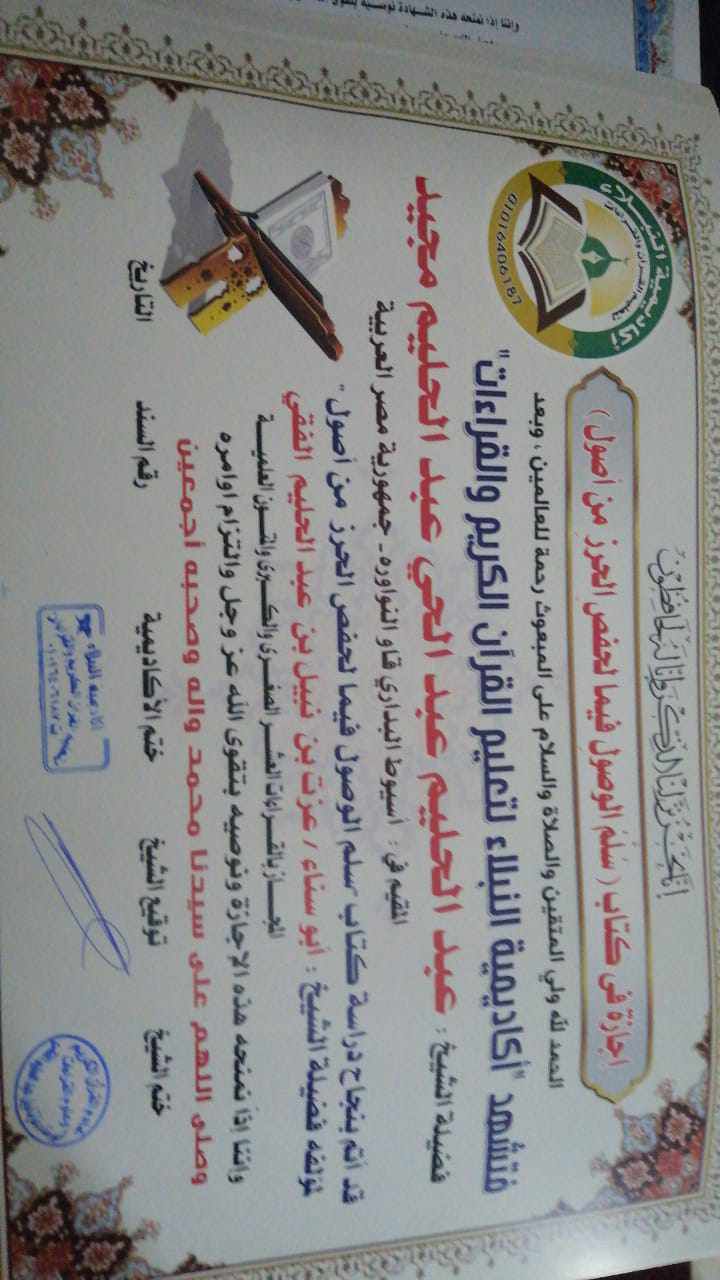 وإننا إذا نمنحه هذه الشهادة نوصيه بتقوى
إنا نحن نزلنا الذكر وإنا له لحافظون
أكاديمية النبلاء
لتعليم القرآن والقراءات
01016406187
اجازة في كتاب ( سُلم الوصول فيما لحفص الحرز من أصول )
الحمد لله ولي المتقين والصلاة والسلام على المبعوث رحمة للعالمين ، وبعد
فتشهد "أكاديمية النبلاء لتعليم القرآن الكريم والقراءات"
فضيلة الشيخ : عبد الحليم عبد الحي عبد الحليم مجيد
المقيم في : أسيوط البداري قاو النواوره - جمهورية مصر العربية
قد أتم بنجاح دراسة كتاب "سلم الوصول فيما لحفص الحرز من أصول"
لمؤلفه فضيلة الشيخ : أبو سناء / عزت بن نبيل بن عبد الحليم الفقي
المجاز بالقراءات العشر الصغرى والكبرى والمتون العلمية
واننا اذا نمنحه هذه الاجازة ونوصيه بتقوى الله عز وجل والتزام اوامره
وصلى اللهم على سيدنا محمد واله وصحبه أجمعين
التاريخ رقم السند ختم الأكاديمية توقيع الشيخ ختم الشيخ
أكاديمية النبلاء